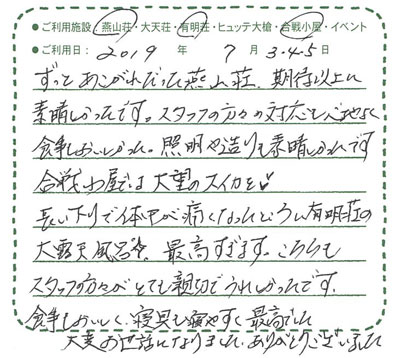 ●ご利用施設 燕山荘・大天荘・有明荘・ヒュッテ大槍・合戦小屋・イベント
●ご利用日: 2019 年 7 月 3・4・5 日
ずっとあこがれだった燕山荘、期待以上に
素晴しかったです。スタッフの方々の対応も心地よく
食事もおいしかった。照明や造りも素晴しかったです
合戦小屋では大望のスイカを♥
長い下りで体中が痛くなったところに有明荘の
大露天風呂、最高すぎます。こちらも
スタッフの方々がとても親切でうれしかったです。
食事もおいしく、寝具も寝やすく最高でした
大変お世話になりました。ありがとうございました